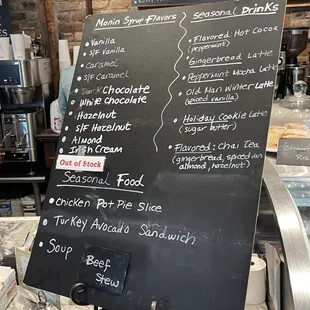 Monin Syrup Flavors
Vanilla
S/F Vanilla
Caramel
S/F Caramel
Dark Chocolate
White Chocolate
Hazelnut
S/F Hazelnut
Almond
Irish Cream
Out of Stock
Seasonal Drinks
Flavored Hot Cocoa
(peppermint)
Gingerbread Latte
Peppermint Mocha Latte
Old Man Winter Latte
(spiced vanilla)
Holiday Cookie Latte
(sugar butter)
Flavored Chai Tea
(gingerbread, spiced van
almond, hazelnut)
Seasonal Food
Chicken Pot Pie Slice
Turkey Avocado Sandwich
Soup
Beef
Stew